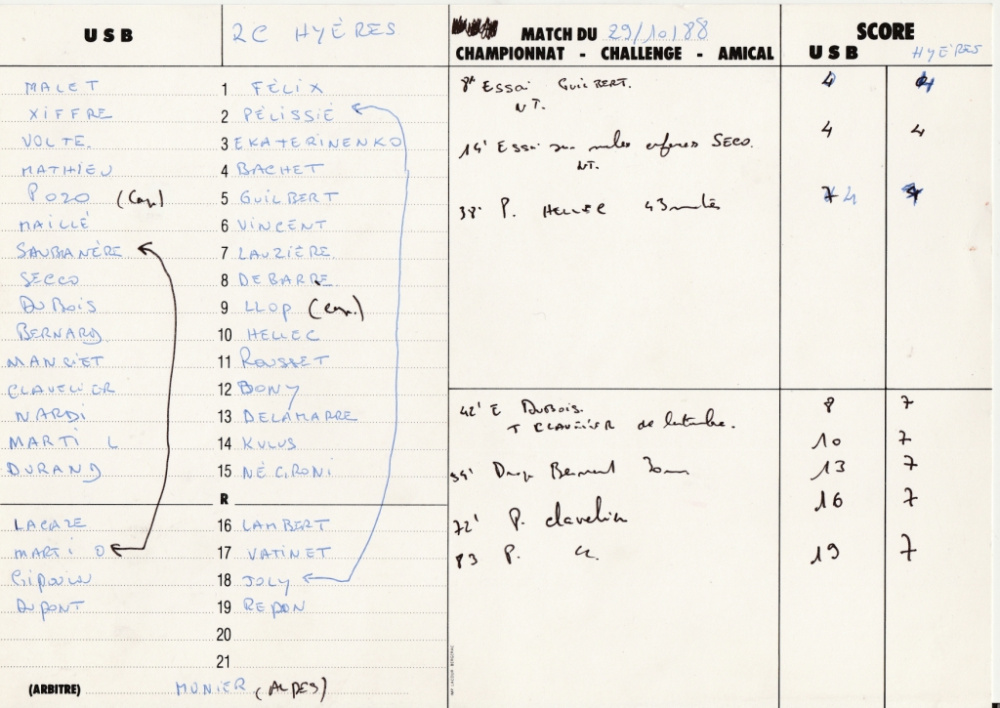 USB 2C HYÈRES MATCH DU 29/10/88 SCORE
CHAMPIONNAT - CHALLENGE - AMICAL USB HYÈRES
MALET 1 FÉLIX
XIFFRE 2 PÉLISSIÉ
VOLTE. 3 EKATERINENKO
MATHIEU 4 BACHET
POZO (Cap.) 5 GUILBERT
MAILLÉ 6 VINCENT
SAUBANÈRE 7 LAUZIÈRE
SECCO 8 DEBARRE
DUBOIS 9 LLOP (cap.)
BERNARD 10 HELLEC
MANCIET 11 ROUSSET
CLAVELIER 12 BONY
NARDI 13 DELAMARRE
MARTI L 14 KULUS
DURAND 15 NÉGRONI
R
LACAZE 16 LAMBERT
MARTI O 17 VATINET
GIPOULOU 18 JOLY
DUPONT 19 REPON
20
21
(ARBITRE) MUNIER (ALPES)
8' Essai GUILBERT. 4 4
NT.
4 4
14' Essai sur mêlée SECO.
NT.
38' P. HELLEC 43 mètres 4 7
42' E DUBOIS. 8 7
T CLAVELIER de 10 7
Drop Bernard 30m 13 7
72' P. clavelier 16 7
83 P. 19 7